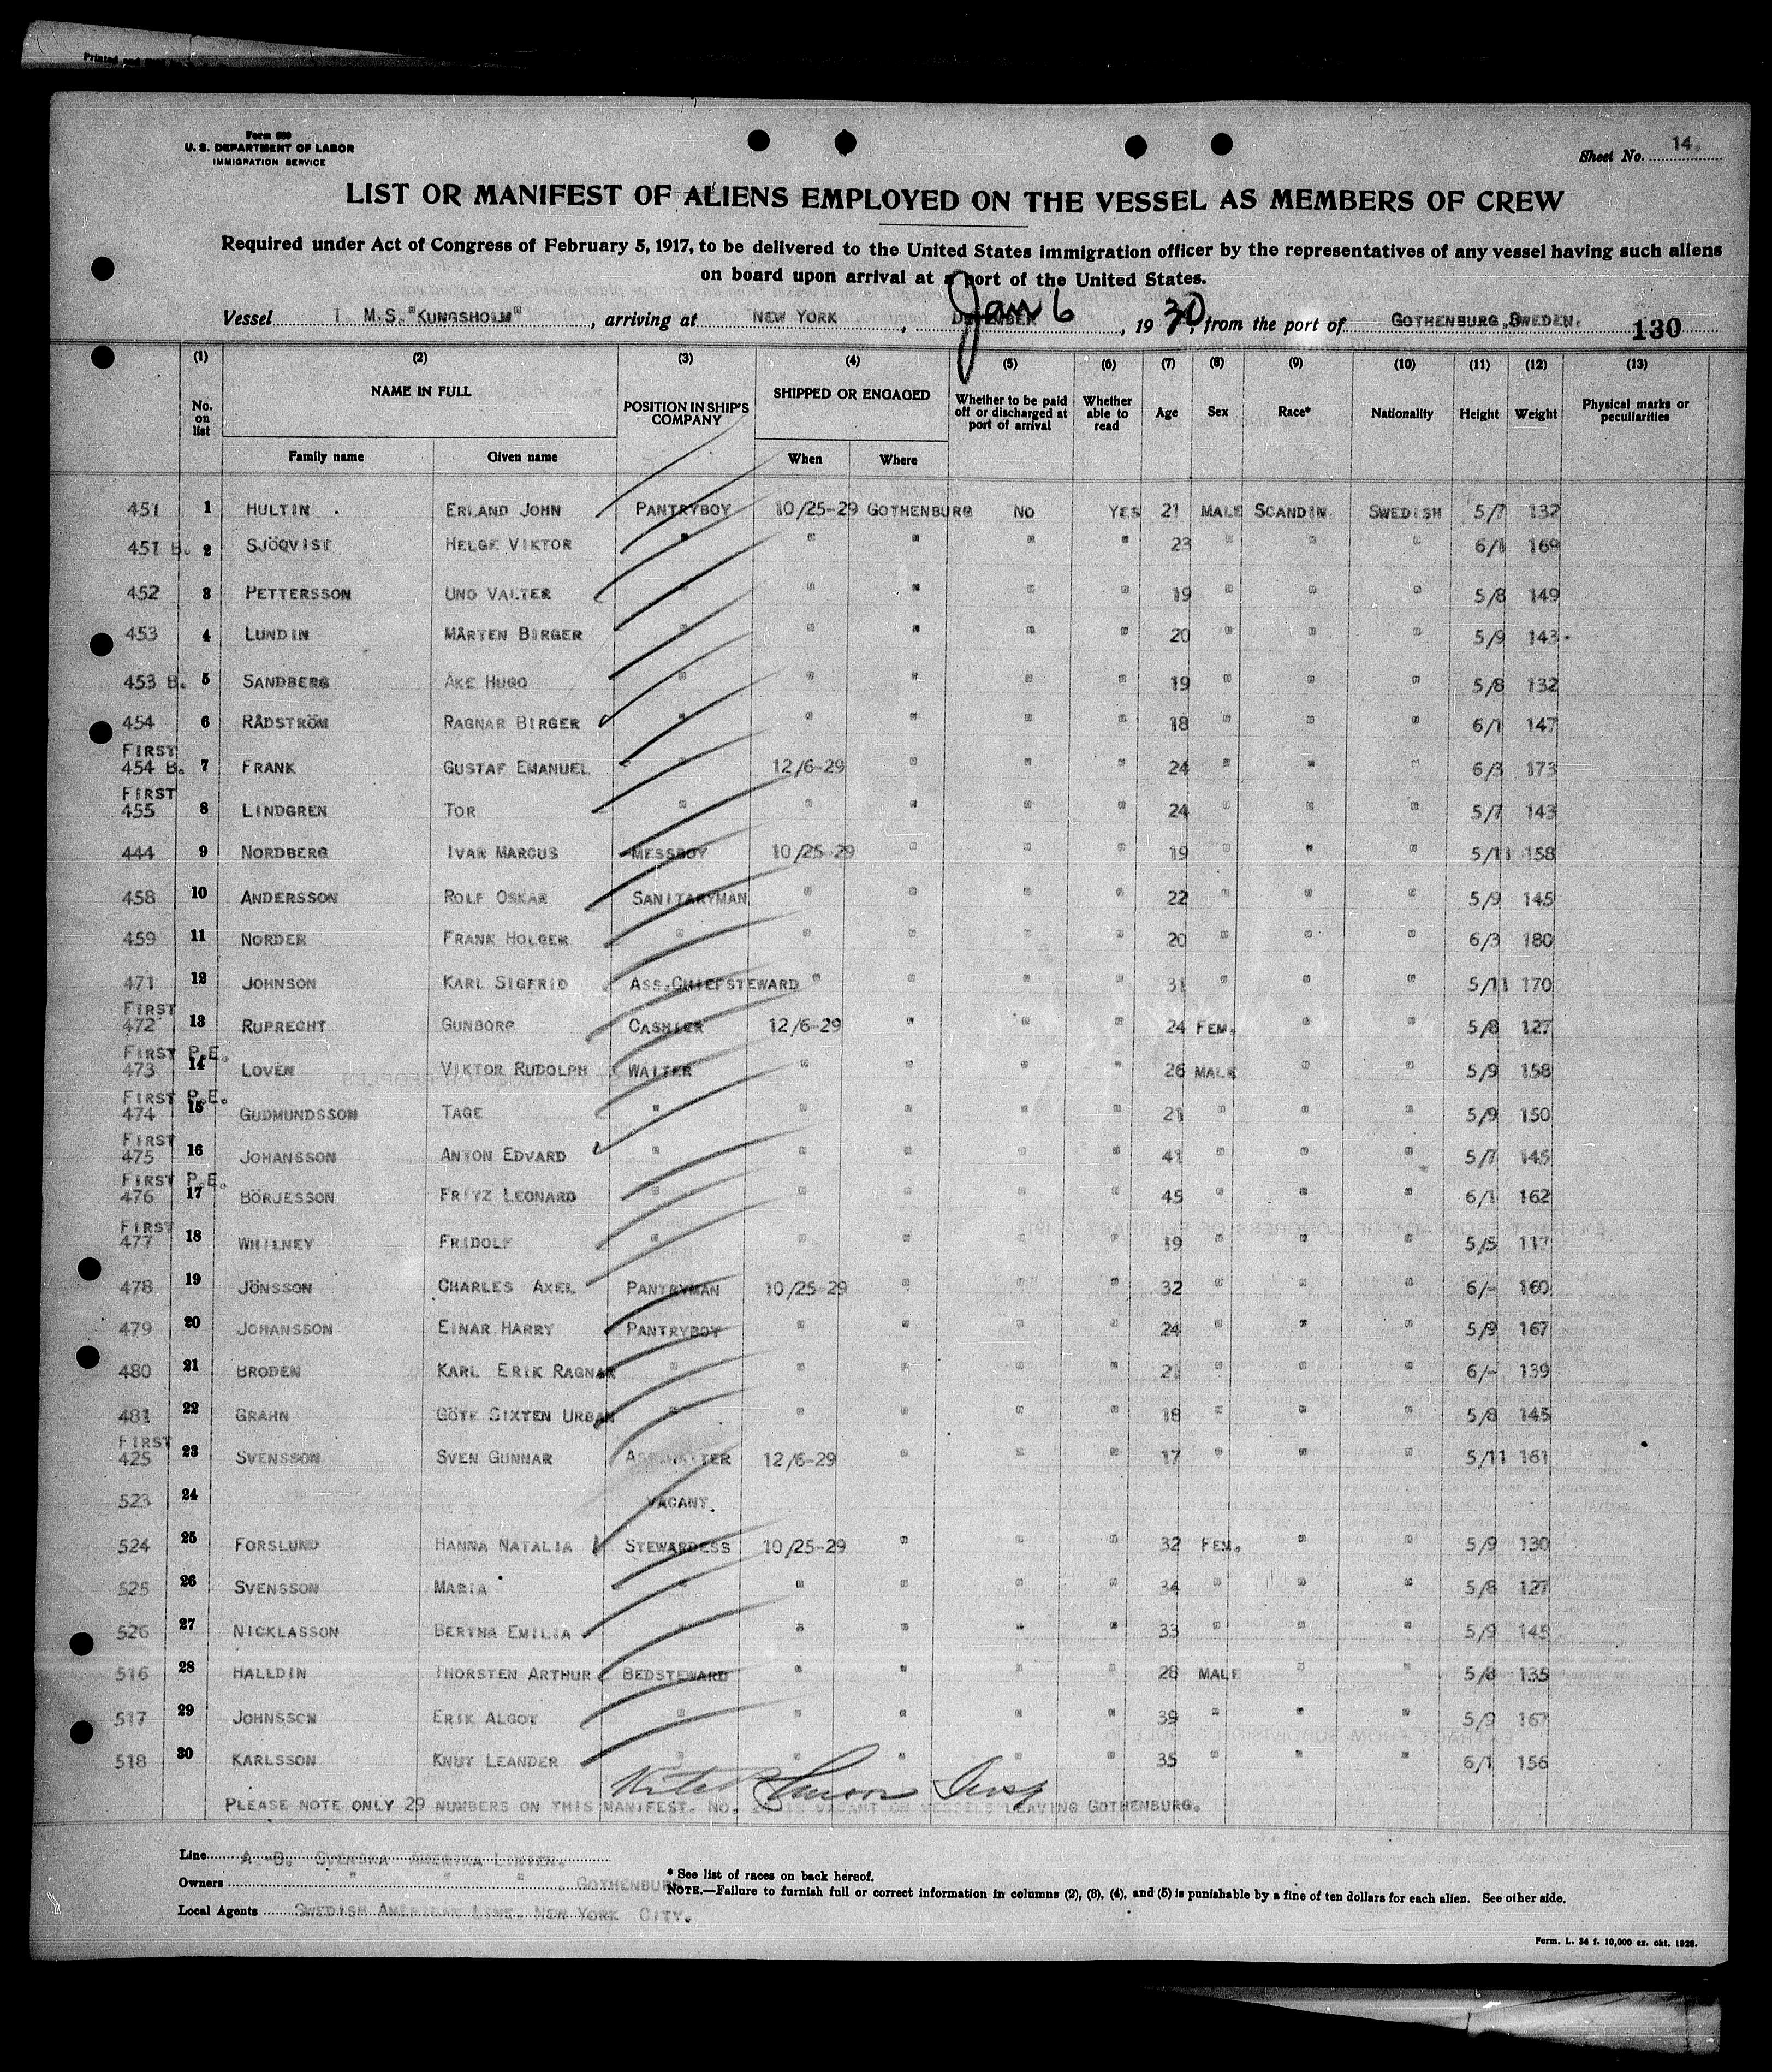 Form 680
U. S. DEPARTMENT OF LABOR
IMMIGRATION SERVICE
Sheet No. 14.
LIST OR MANIFEST OF ALIENS EMPLOYED ON THE VESSEL AS MEMBERS OF CREW
Required under Act of Congress of February 5, 1917, to be delivered to the United States immigration officer by the representatives of any vessel having such aliens
on board upon arrival at a port of the United States.
Vessel M.S."KUNGSHOLM", arriving at NEW YORK, Jan 6, 1930, from the port of GOTHENBURG, SWEDEN. 130
(1) (2) (3) (4) (5) (6) (7) (8) (9) (10) (11) (12) (13)
No. on list NAME IN FULL POSITION IN SHIP'S COMPANY SHIPPED OR ENGAGED Whether to be paid off or discharged at port of arrival Whether able to read Age Sex Race* Nationality Height Weight Physical marks or peculiarities
Family name Given name When Where
451 1 HULTIN ERLAND JOHN PANTRYBOY 10/25-29 GOTHENBURG NO YES 21 MALE SCANDIN. SWEDISH 5/7 132
451 B. 2 SJÖQVIST HELGE VIKTOR " " " " " 23 " " " 6/1 169
452 3 PETTERSSON UNO VALTER " " " " " 19 " " " 5/8 149
453 4 LUNDIN MÅRTEN BIRGER " " " " " 20 " " " 5/9 143
453 B. 5 SANDBERG ÅKE HUGO " " " " " 19 " " " 5/8 132
454 6 RÅDSTRÖM RAGNAR BIRGER " " " " " 18 " " " 6/1 147
FIRST
454 B. 7 FRANK GUSTAF EMANUEL " 12/6-29 " " " 24 " " " 6/3 173
FIRST
455 8 LINDGREN TOR " " " " " 24 " " " 5/7 143
444 9 NORDBERG IVAR MARCUS MESSBOY 10/25-29 " " " 19 " " " 5/11 158
458 10 ANDERSSON ROLF OSKAR SANITARYMAN " " " " 22 " " " 5/9 145
459 11 NORDER FRANK HOLGER " " " " " 20 " " " 6/3 180
471 12 JOHNSON KARL SIGFRID ASS.CHIEFSTEWARD " " " " 31 " " " 5/11 170
FIRST
472 13 RUPRECHT GUNBORG CASHIER 12/6-29 " " " 24 FEM. " " 5/8 127
FIRST P.E.
473 14 LOVÉN VIKTOR RUDOLPH WAITER " " " " 26 MALE " " 5/9 158
FIRST P.E.
474 15 GUDMUNDSSON TAGE " " " " " 21 " " " 5/9 150
FIRST
475 16 JOHANSSON ANTON EDVARD " " " " " 41 " " " 5/7 145
FIRST P.E.
476 17 BÖRJESSON FRITZ LEONARD " " " " " 45 " " " 6/1 162
FIRST
477 18 WHILNEY FRIDOLF " " " " " 19 " " " 5/5 117
478 19 JÖNSSON CHARLES AXEL PANTRYMAN 10/25-29 " " " 32 " " " 6/- 160
479 20 JOHANSSON EINAR HARRY PANTRYBOY " " " " 24 " " " 5/9 167
480 21 BRODEN KARL ERIK RAGNAR " " " " " " " " 6/- 139
481 22 GRAHN GÖTE SIXTEN URBAN " " " " " 18 " " " 5/8 145
FIRST
425 23 SVENSSON SVEN GUNNAR ASS.WAITER 12/6-29 " " " 17 " " " 5/11 161
523 24 VACANT.
524 25 FORSLUND HANNA NATALIA STEWARDESS 10/25-29 " " " 32 FEM. " " 5/9 130
525 26 SVENSSON MARIA " " " " " 34 " " " 5/8 127
526 27 NICKLASSON BERTHA EMILIA " " " " " 33 " " " 5/9 145
516 28 HALLDIN THORSTEN ARTHUR BEDSTEWARD " " " " 28 MALE " " 5/8 135
517 29 JOHNSSON ERIK ALGOT " " " " " 39 " " " 5/9 167
518 30 KARLSSON KNUT LEANDER " " " " " 35 " " " 6/1 156
PLEASE NOTE ONLY 29 NUMBERS ON THIS MANIFEST. NO. IS VACANT ON VESSELS LEAVING GOTHENBURG.
Line A.-B. SVENSKA AMERIKA LINIEN.
Owners " " " , GOTHENBURG
Local Agents SWEDISH AMERICAN LINE, NEW YORK CITY.
* See list of races on back hereof.
NOTE.—Failure to furnish full or correct information in columns (2), (3), (4), and (5) is punishable by a fine of ten dollars for each alien. See other side.
Form. L. 34 f. 10,000 ex. okt. 1928.